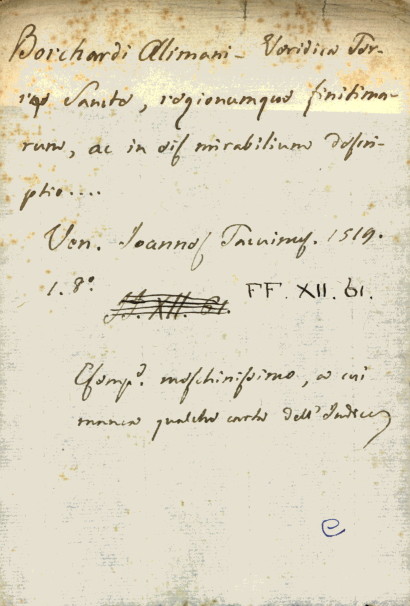 Borchardi Alimani - Veridica Ter-
re Sancte, regionumque finitima-
rum, ac in eis mirabilium descri-
ptio....
Ven. Joannes Tacuinus. 1519.
1. 8.º
FF. XII. 61. FF. XII. 61.
Esemp.º meschinissimo, a cui
manca qualche carta dell'Indice
e